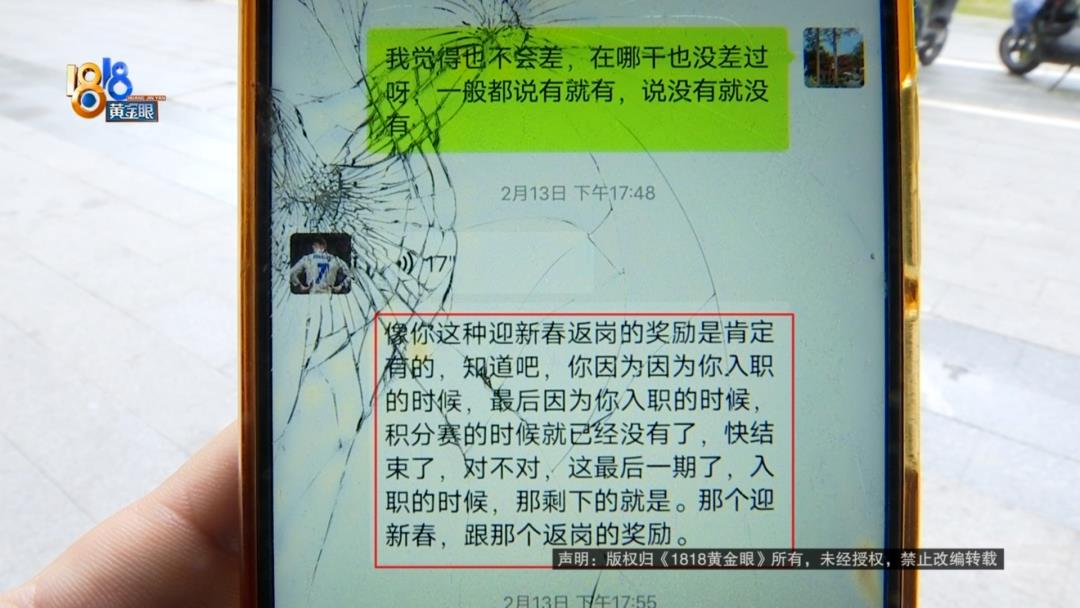 1818
HUANG JIN YAN
黄金眼
我觉得也不会差，在哪干也没差过
呀，一般都说有就有，说没有就没
有
2月13日 下午17:48
7
17"
像你这种迎新春返岗的奖励是肯定
有的，知道吧，你因为因为你入职
的时候，最后因为你入职的时候，
积分赛的时候就已经没有了，快结
束了，对不对，这最后一期了，入
职的时候，那剩下的就是。那个迎
新春，跟那个返岗的奖励。
声明：版权归《1818黄金眼》所有，未经授权，禁止改编转载
2月13日 下午17:55